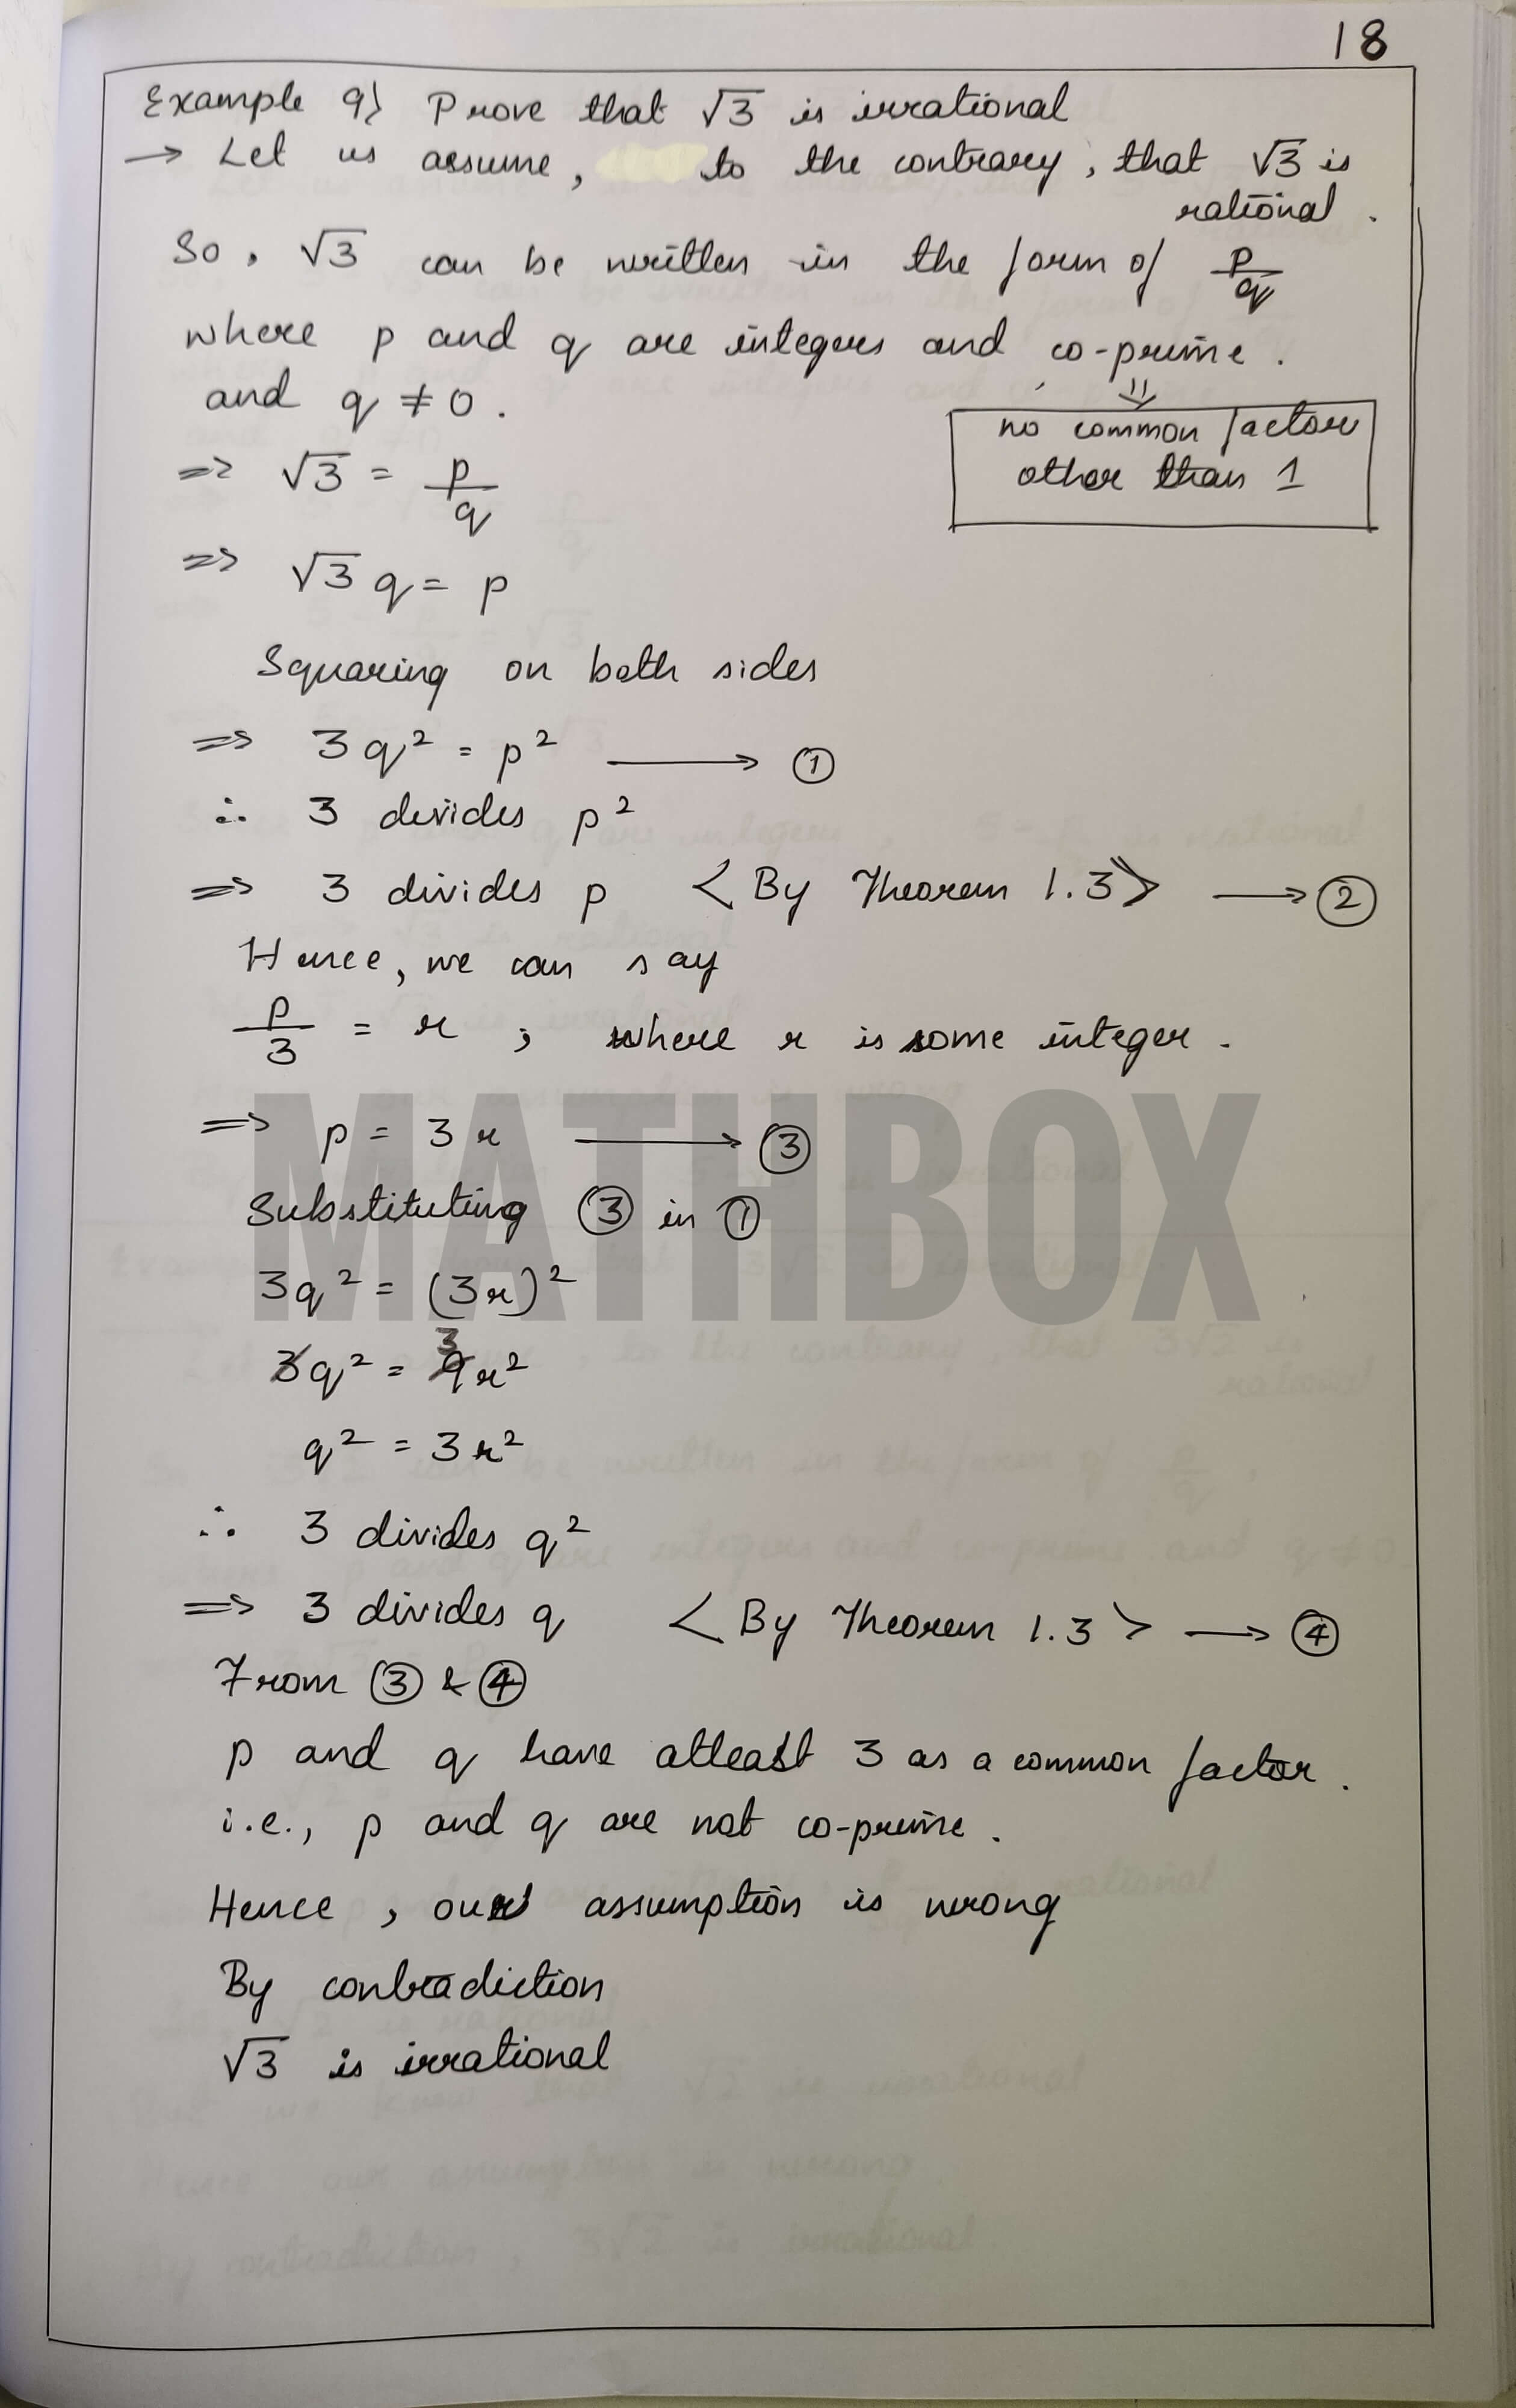 18
Example 9) Prove that √3 is irrational
→ Let us assume, to the contrary, that √3 is
rational.
So, √3 can be written in the form of p/q
where p and q are integers and co-prime.
and q ≠ 0.
⇓
no common factor
other than 1
=> √3 = p/q
=> √3 q = p
Squaring on both sides
=> 3q² = p² ⟶ ①
∴ 3 divides p²
=> 3 divides p <By Theorem 1.3> ⟶ ②
Hence, we can say
p/3 = r ; where r is some integer.
=> p = 3r ⟶ ③
Substituting ③ in ①
3q² = (3r)²
3
3q² = 9r²
q² = 3r²
∴ 3 divides q²
=> 3 divides q <By Theorem 1.3> ⟶ ④
From ③ & ④
p and q have atleast 3 as a common factor.
i.e., p and q are not co-prime.
Hence, our assumption is wrong
By contradiction
√3 is irrational
MATHBOX